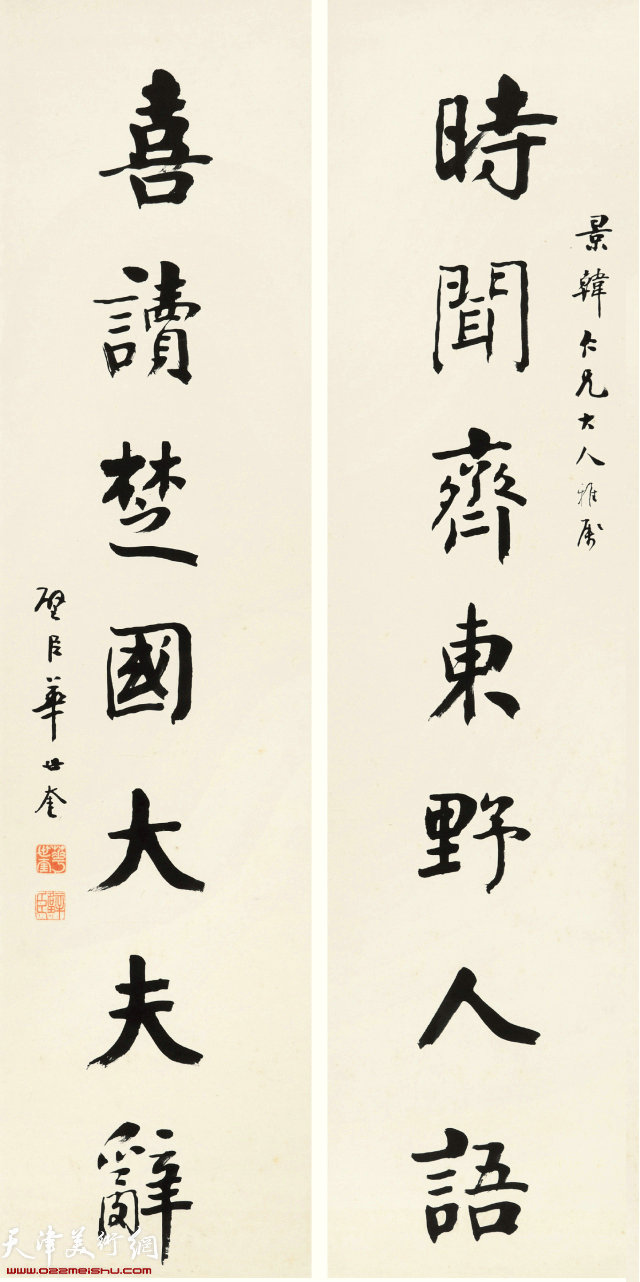 時聞齊東野人語
景韓仁兄大人雅属
喜讀楚國大夫辭
壁臣華世奎
華世奎
壁臣
天津美術網
www.022meishu.com